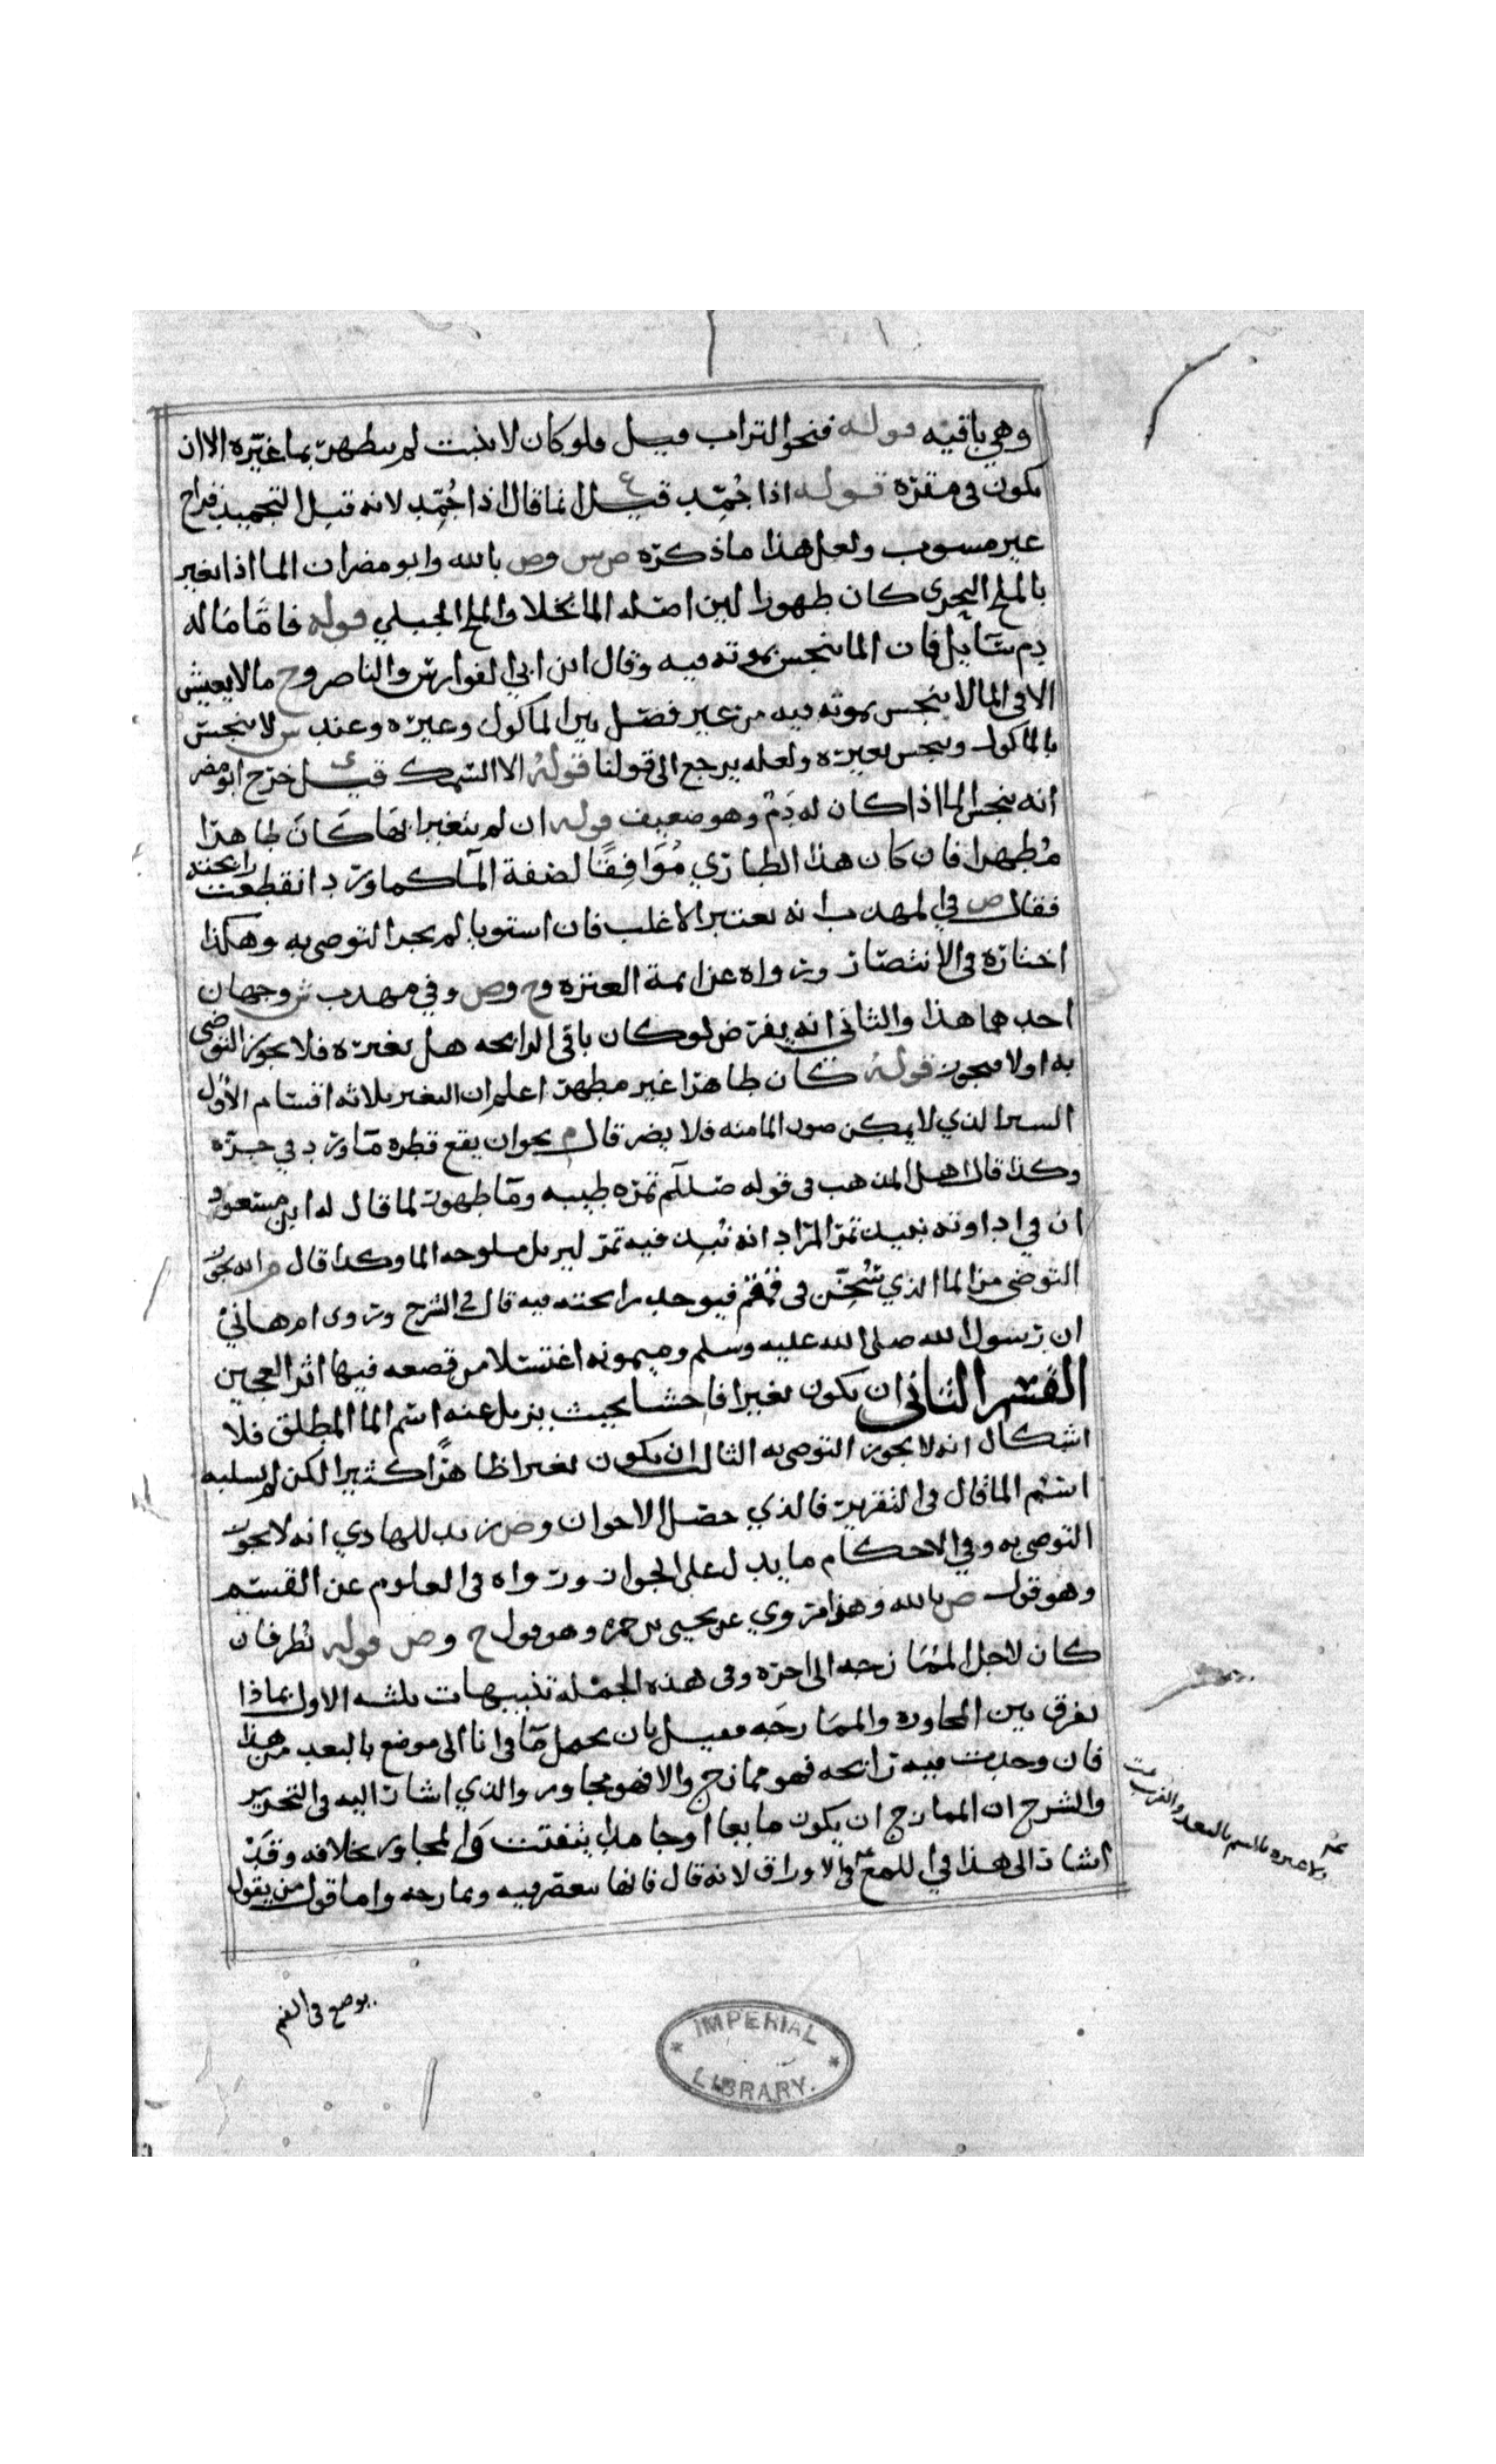 وهي باقيه قوله فنحو التراب قيل فلو كان لا ينبت لم يطهر بما غيّره الا ان
يكون في مقرّه قوله اذا جُمّد قيل انما قال اذا جُمِّد لانه قبل التجميد قراح
غير مسوب ولعل هذا ما ذكره ص س وص بالله وابو مضر ان الما اذا تغير
بالملح البحري كان طهورا لين اصله الما بخلاف الملح الجبلي قوله فامّا مَا له
دم سَايل فان الما ينجس بموته فيه وقال ابن ابي الفوارس والناصر وح ما لا يعيش
الا في الما لا ينجس بموته فيه من غير فصل بين الماكول وغيره وعند س لا ينجس
بالماكول وينجس بغيره ولعله يرجع الى قولنا قوله الا السّمك قيل خرّج ابو مضر
انه ينجس الما اذا كان له دَمٌ وهو ضعيف قوله ان لم يتغير ايضا كان طاهرا
مُطهرا فان كان هذا الطاري مُوَافِقًا لصفة المآ كماورد انقطعت رايحته
فقال ص في المهذب انه يعتبر الاغلب فان استويا لم يجز التوضي به وهكذا
اختاره في الانتصار ورواه عن ايمة العتره وح وص وفي مهذب ش وجهان
احدهما هذا والثاني انه يفرض لو كان باقي الرايحه هل يغيره فلا يجوز التوضي
به او لا فيجوز قوله كان طاهرا غير مطهر اعلم ان التغير ثلاثه اقسام الأول
اليسير الذي لا يمكن صون الما منه فلا يضر قال م نحو ان يقع قطره مَاورد في جرّه
وكذا قال اهل المذهب في قوله صلالم تمره طيبه ومَا طهور لما قال له ابن مسعود
ان في اداوته نبيذ تمر المراد انه نُبِذ فيه تمر ليزيل ملوحه الما وكذا قال م انه يجوز
التوضي من الما الذي سُخّن في قمقم فيوجد رايحته فيه قال في الشرح وروى ام هاني
ان رسول الله صلى الله عليه وسلم وميمونه اغتسلا من قصعه فيها اثر العجين
القسم الثاني ان يكون تغيرا فاحشا بحيث يزيل عنه اسم الما المطلق فلا
اشكال انه لا يجوز التوضي به الثالث ان يكون تغيرا ظاهرًا كثيرا لكن لم يسلبه
اسم الما قال في التقرير فالذي حصل الاخوان وص زيد للهادي انه لا يجوز
التوضي به وفي الاحكام ما يدل على الجواز ورواه في العلوم عن القسم
وهو قول ص بالله وهذا مروي عن يحيى بن حمزه وهو قول ح وص قوله نُظر فان
كان لاجل الممَازجه الى اخره وفي هذه الجمله تنبيهات ثلثه الاول بماذا
يفرق بين المجاوره والممَازجَه فقيل بان يحمل مَا في انا الى موضع بالبعد من هذا
فان وجدت فيه رايحه فهو ممازج والا فهو مجاور والذي اشار اليه في التحرير
والشرح ان الممازج ان يكون مايعا او جامدا يتفتت وَالمجاور بخلافه وقد
اشار الى هذا في اللمع في الاوراق لانه قال فانها تنعصر فيه وتمازجه واما قول من يقول
يوضع في الفم
IMPERIAL
LIBRARY.